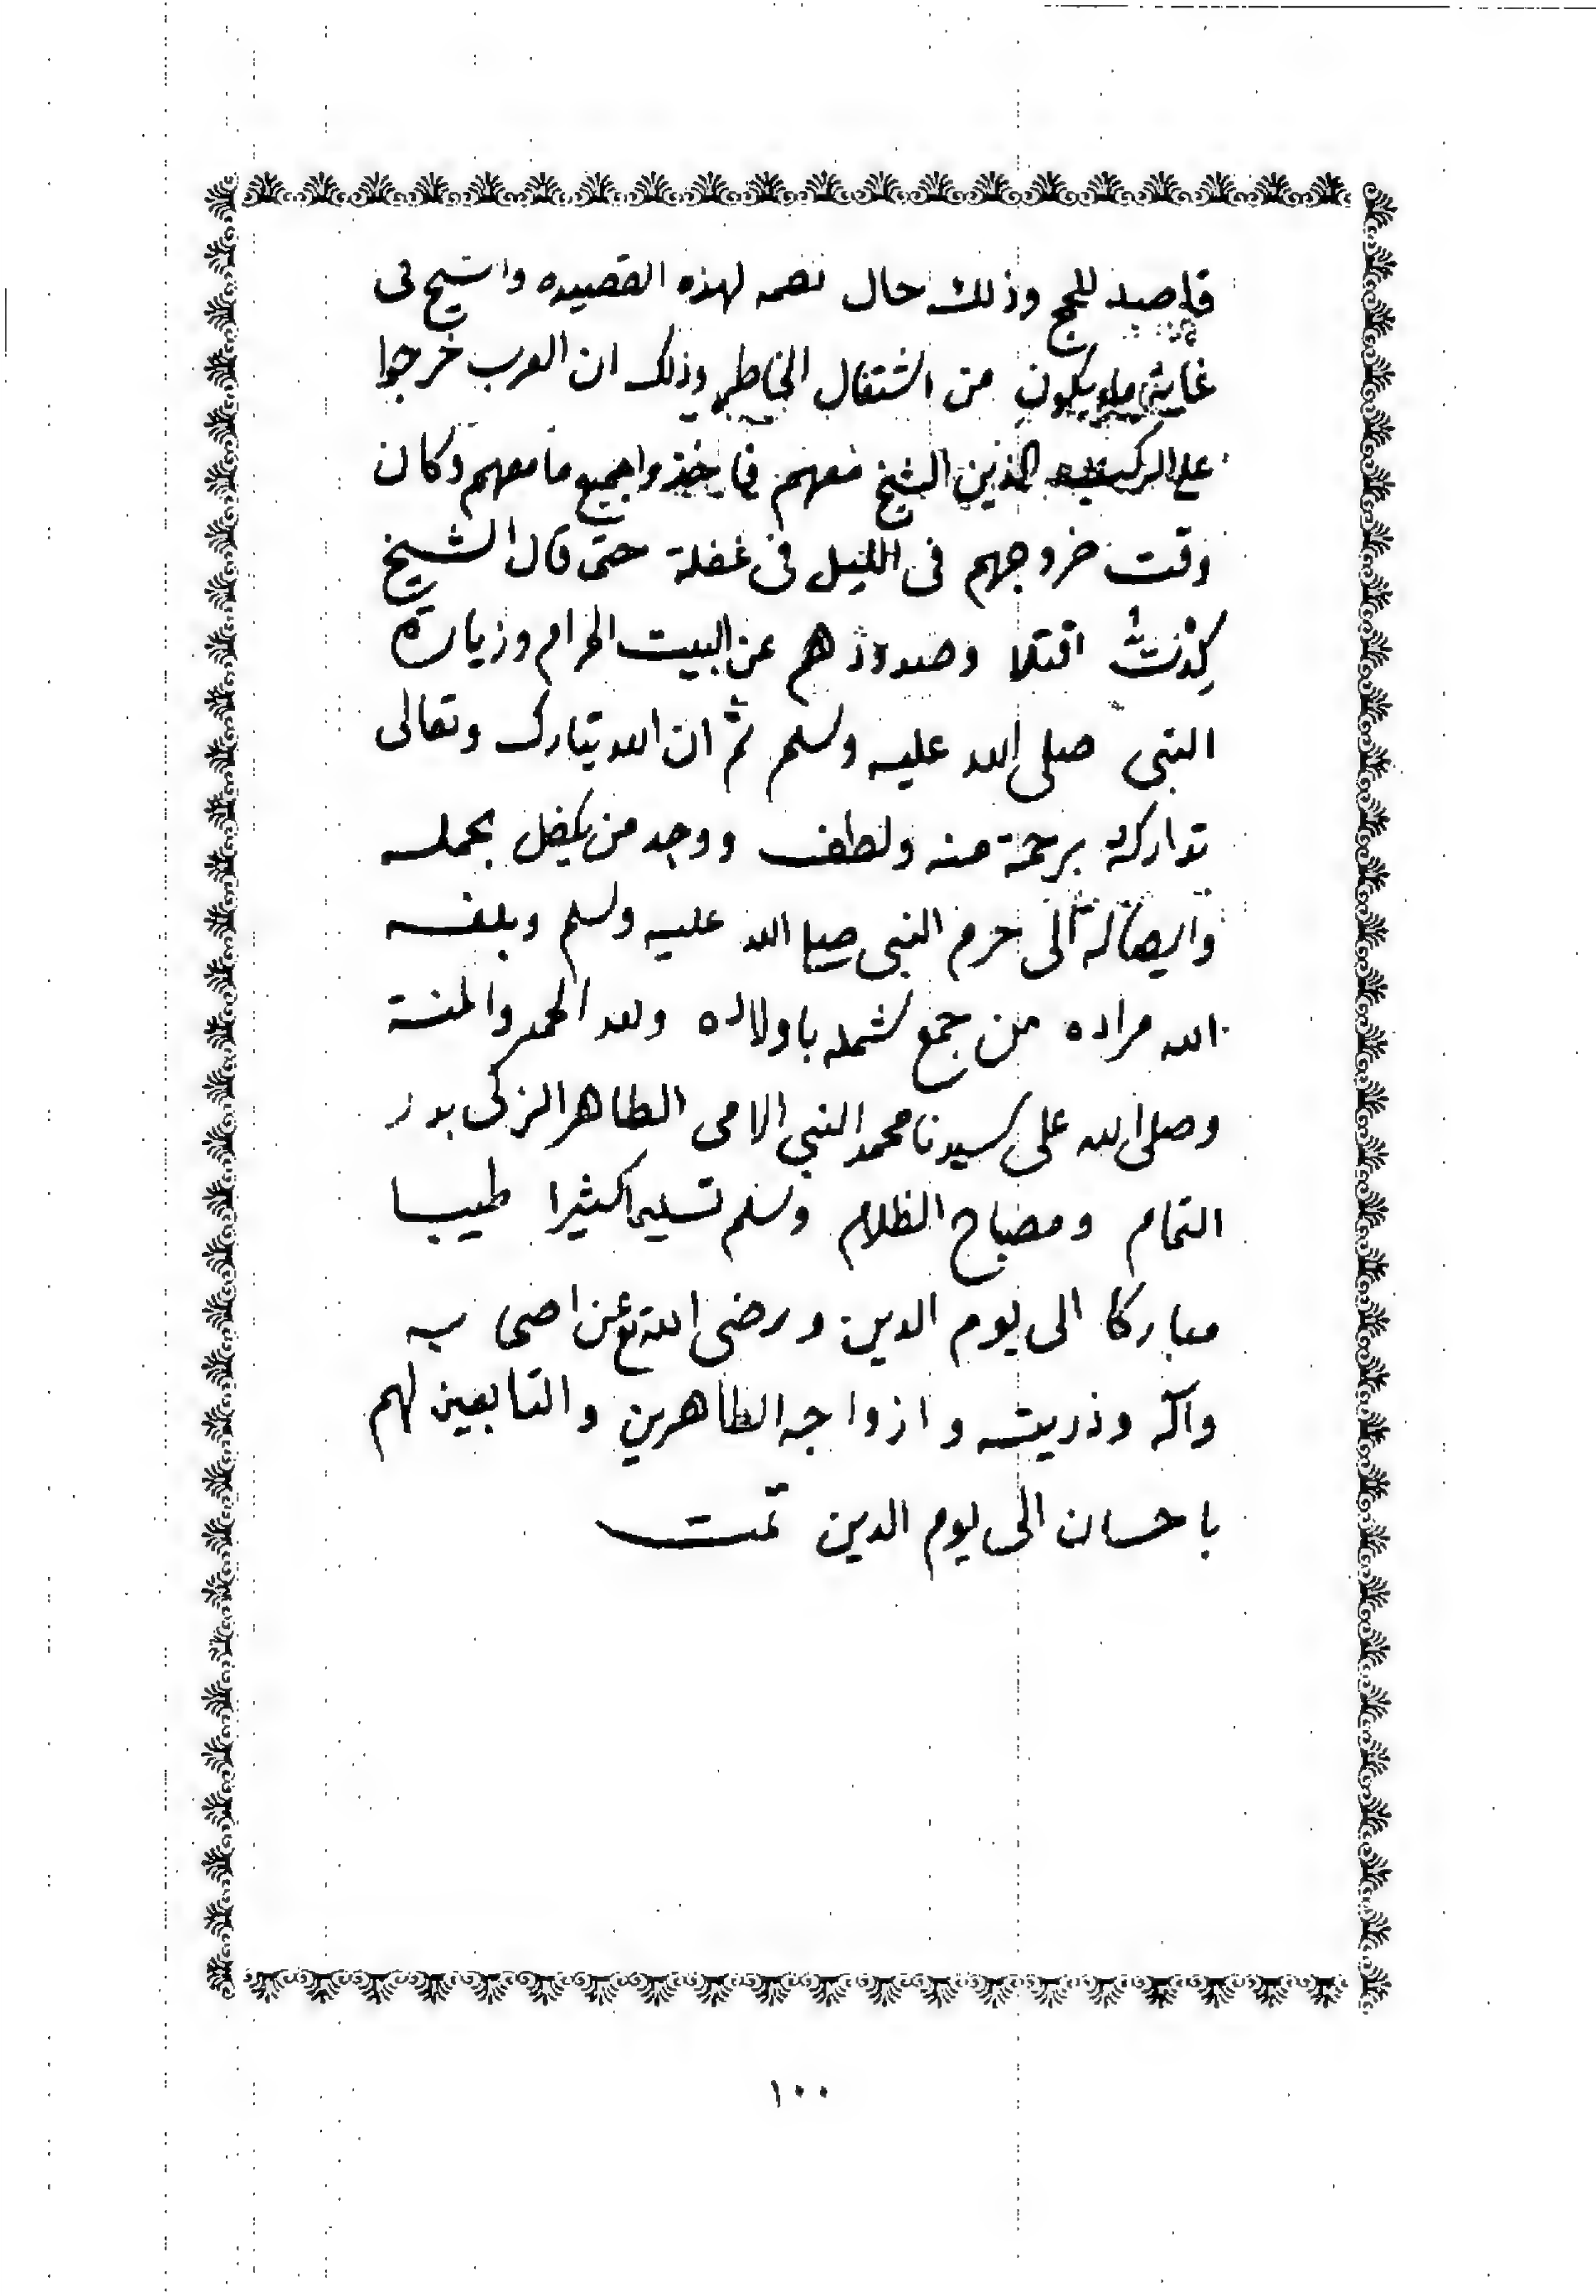 قاصد للحج وذلك حال نظمه لهذه القصيده والشيخ فى
غاية ما يكون من اشتغال الخاطر وذلك ان العرب خرجوا
على الركب الذين الشيخ معهم فاخذوا جميع ما معهم وكان
وقت خروجهم فى الليل فى غفلة حتى قال الشيخ
كِدْتُ اقتلا وصدوذهم عن البيت الحرام وزيارة
النبى صلى الله عليه وسلم ثم ان الله تبارك وتعالى
تداركه برحمة منه ولطف ووجد من يكفل بحمله
وايصاله الى حرم النبى صلى الله عليه وسلم وبلغه
الله مراده من جمع شمله باولاده ولله الحمد والمنة
وصلى الله على سيدنا محمد النبي الامى الطاهر الزكى بدر
التمام ومصباح الظلام وسلم تسليما كثيرا طيبا
مباركا الى يوم الدين ورضى الله عن اصحابه
وآله وذريته وازواجه الطاهرين والتابعين لهم
باحسان الى يوم الدين تمت
١٠٠